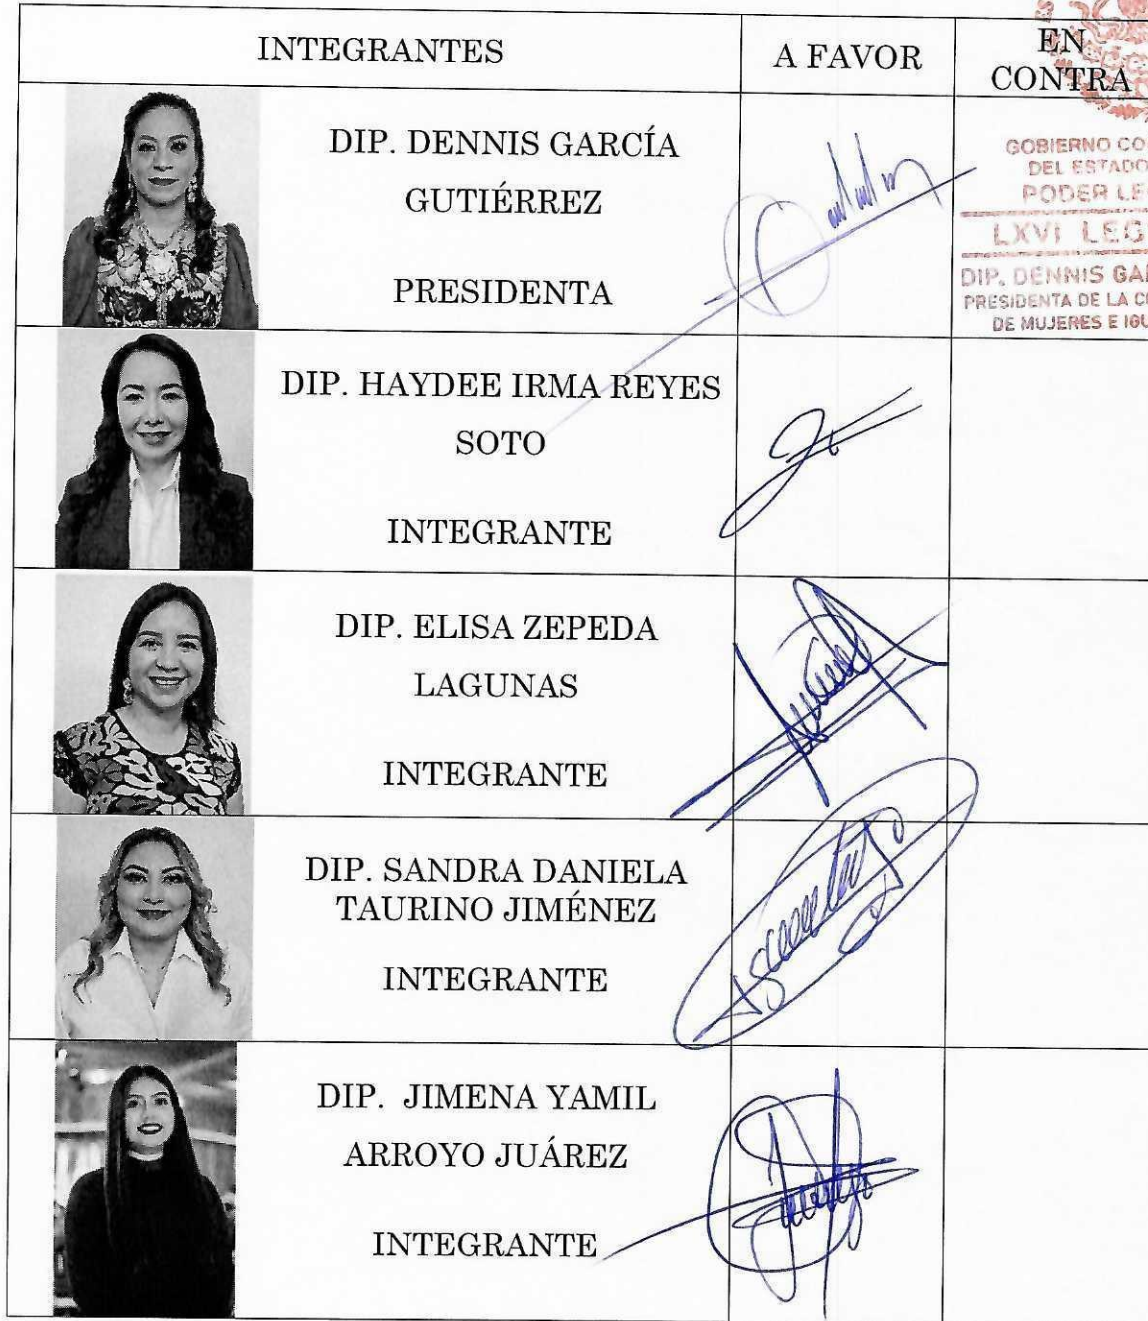 INTEGRANTES
A FAVOR
EN
CONTRA
DIP. DENNIS GARCÍA
GUTIÉRREZ
PRESIDENTA
GOBIERNO CO
DEL ESTADO
PODER LE
LXVI LEG
DIP. DENNIS GA
PRESIDENTA DE LA C
DE MUJERES E IGU
DIP. HAYDEE IRMA REYES
SOTO
INTEGRANTE
DIP. ELISA ZEPEDA
LAGUNAS
INTEGRANTE
DIP. SANDRA DANIELA
TAURINO JIMÉNEZ
INTEGRANTE
DIP. JIMENA YAMIL
ARROYO JUÁREZ
INTEGRANTE